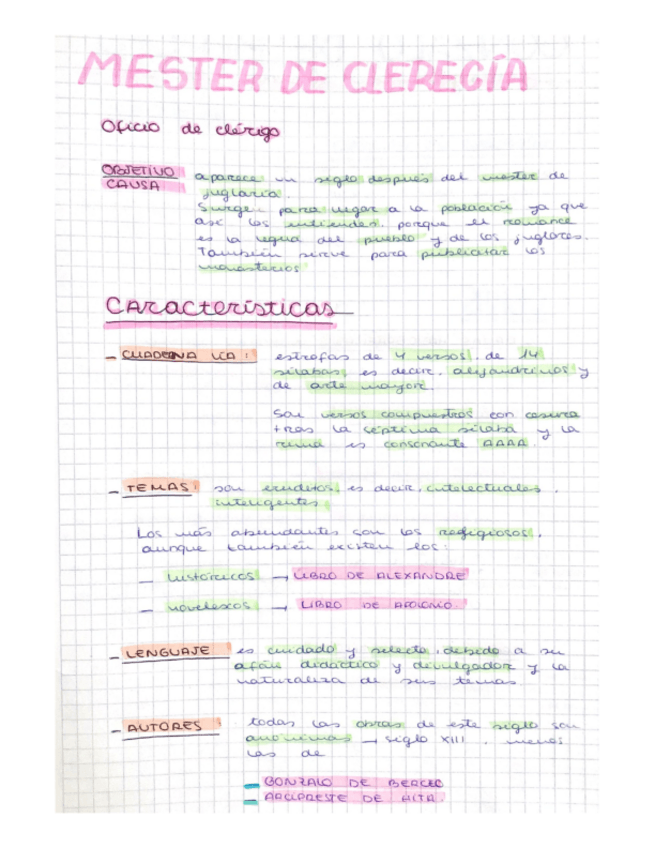 MESTER DE CLERECÍA
Oficio de clérigo
OBJETIVO
CAUSA
aparece un siglo después del mester de
juglaría.
Surgen para llegar a la población ya que
así los entienden, porque el romance
es la legua del pueblo y de los juglares.
También sirve para publicitar los
monasterios
Características
- CUADERNA VÍA: estrofas de 4 versos, de 14
sílabas, es decir, alejandrinos y
de arte mayor.
Son versos compuestos con cesura
tras la séptima sílaba y la
rima es consonante AAAA.
- TEMAS: son eruditos, es decir, intelectuales,
inteligentes.
Los más abundantes son los religiosos,
aunque también existen los:
- históricos → LIBRO DE ALEXANDRE
- novelescos → LIBRO DE APOLONIO.
- LENGUAJE es cuidado y selecto, debido a su
afán didáctico y divulgador y la
naturaleza de sus temas
- AUTORES todas las obras de este siglo son
anónimas → siglo XIII, menos
las de
- GONZALO DE BERCEO
- ARCIPRESTE DE HITA.